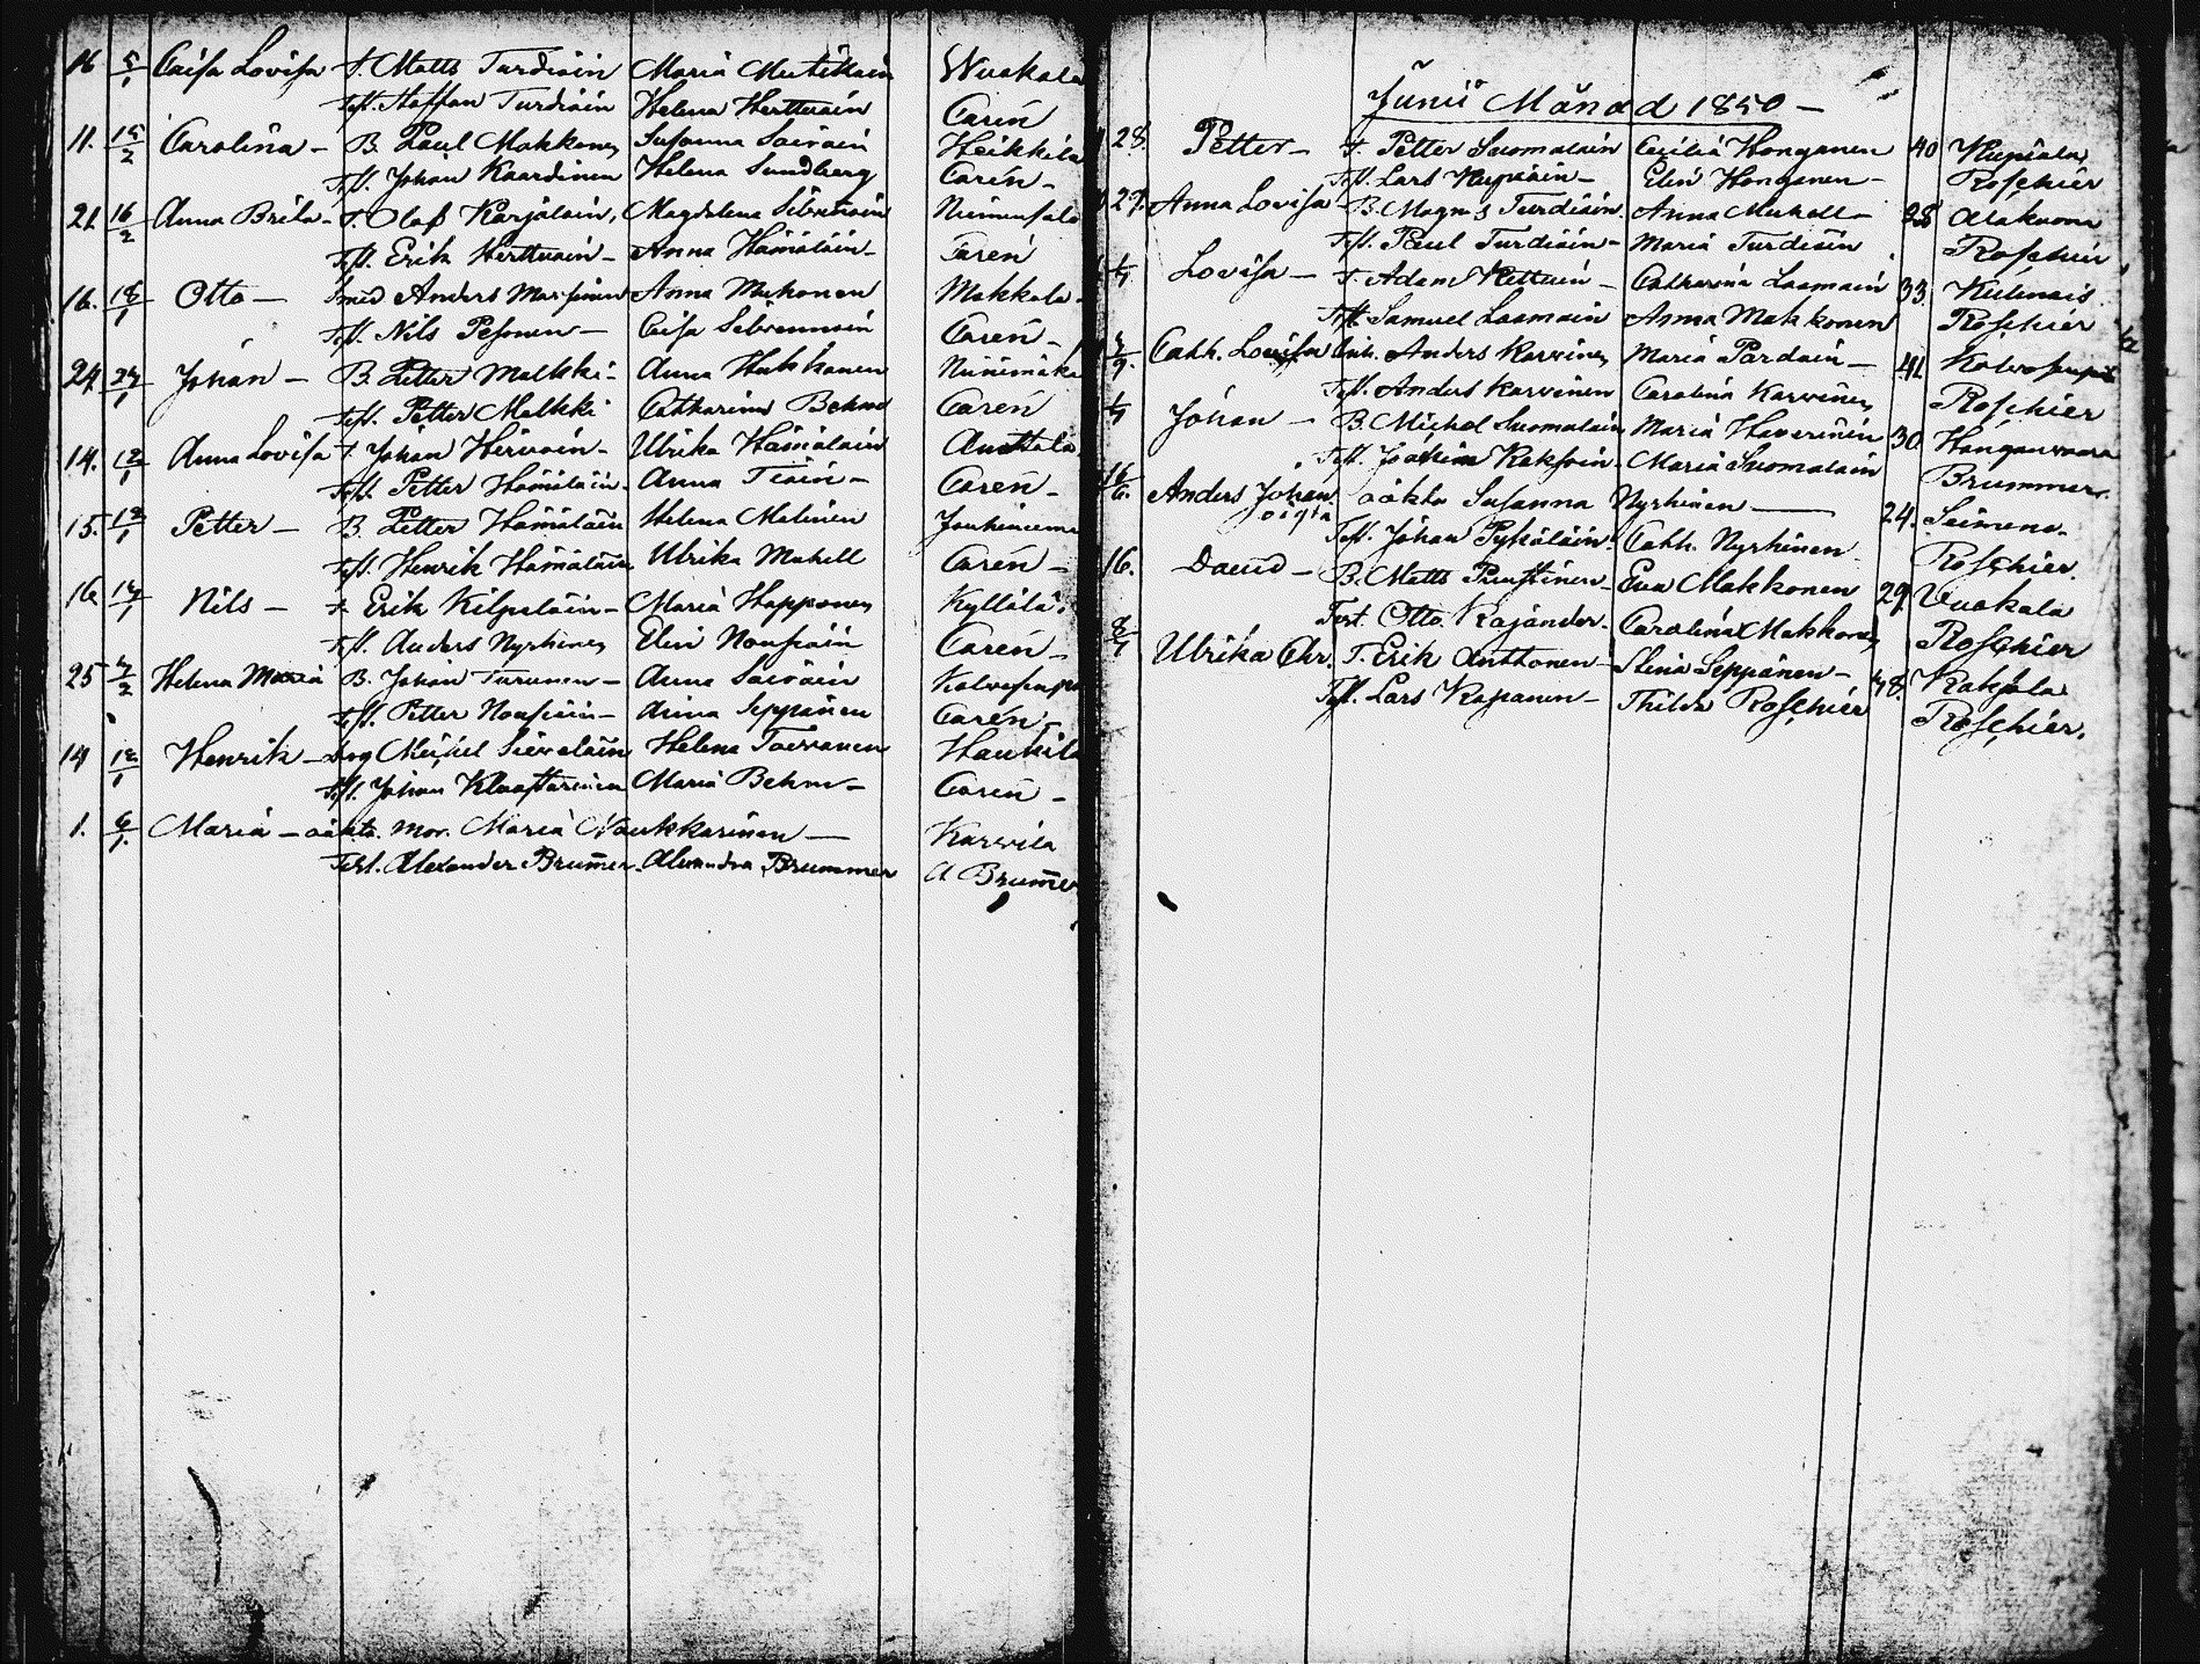 16 5/1 Caisa Lovisa T. Matts Turdiain Maria Mutikain Wuokala
Test. Staffan Turdiain Helena Herttuain Carén
11. 15/2 Carolina – B. Paul Makkonen Susanna Soiväin Heikkilä
Test. Johan Kaardinen Helena Sundberg Carén –
21 16/2 Anna Brita – T. Olof Karjalain, Magdalena Silvennoin
Test. Erik Herttuain – Anna Hämäläin – Carén
16. 18/1 Otto – Smed Anders Anna Mikonen Makkola –
Test. Nils Pesonen – Caisa Silvennoin Carén –
24 27/1 Johan – B. Petter Malkki – Anna Hukkanen Niinimäki
Test. Petter Malkki Catharina Behm Carén
14. 12/1 Anna Lovisa T. Johan Hirvoin – Ulrika Hämäläin
Test. Petter Hämäläin – Anna Tiain – Carén –
15. 12/1 Petter – B. Petter Hämäläin Helena Malinen
Test. Henrik Hämäläin Ulrika Makell Carén –
16 14/1 Nils – T. Erik Kilpeläin – Maria Happonen Kyllälä
Test. Anders Nyrhinen Elin Nousiain Carén –
25 4/2 Helena Maria B. Johan Turunen – Anna Soiväin
Test. Petter Nousiain – Anna Seppänen Carén –
14 12/1 Henrik – Helena Toivanen Haukila
Test. Johan Maria Behm – Carén –
1. 6/1. Maria – oäkta. Mor. Maria Naukkarinen – Karvila
Test. Alexander Brum̄er. Alexandra Brummer A Brum̄er
Junii Månad 1850 –
28. Petter – T. Petter Suomalain Cecilia Honganen 40 Kupiala
Test. Lars Kupiain – Elin Honganen – Roschier
27. Anna Lovisa – B. Magnus Turdiain. Anna Mukell – 28 Alakuona
Test. Paul Turdiain – Maria Turdiain Roschier
1/7 Lovisa – T. Adam Kettuin – Catharina Laamain 33. Kulmais
Test. Samuel Laamain Anna Makkonen Roschier
Cath. Lovisa Anders Karvinen Maria Pardain – 41
Test. Anders Karvinen Carolina Karvinen Roschier
1/7 Johan – B. Michel Suomalain Maria Haverinen 30. Honganvaara
Test. Joakim Kaksoin – Maria Suomalain Brummer.
16/6. Anders Johan oigta oäkta Susanna Nyrhinen – 24. Seimene.
Test. Johan Pyhäläin. Cath. Nyrhinen Roschier.
16. David – B. Matts Puustinen – Eva Makkonen 29. Vuokala
Test. Otto Rajander. Carolina Makkonen Roschier
8/7 Ulrika Chr. T. Erik Anttonen – Stina Seppänen – 48. Koksola
Test. Lars Kapanen – Thilda Roschier Roschier.